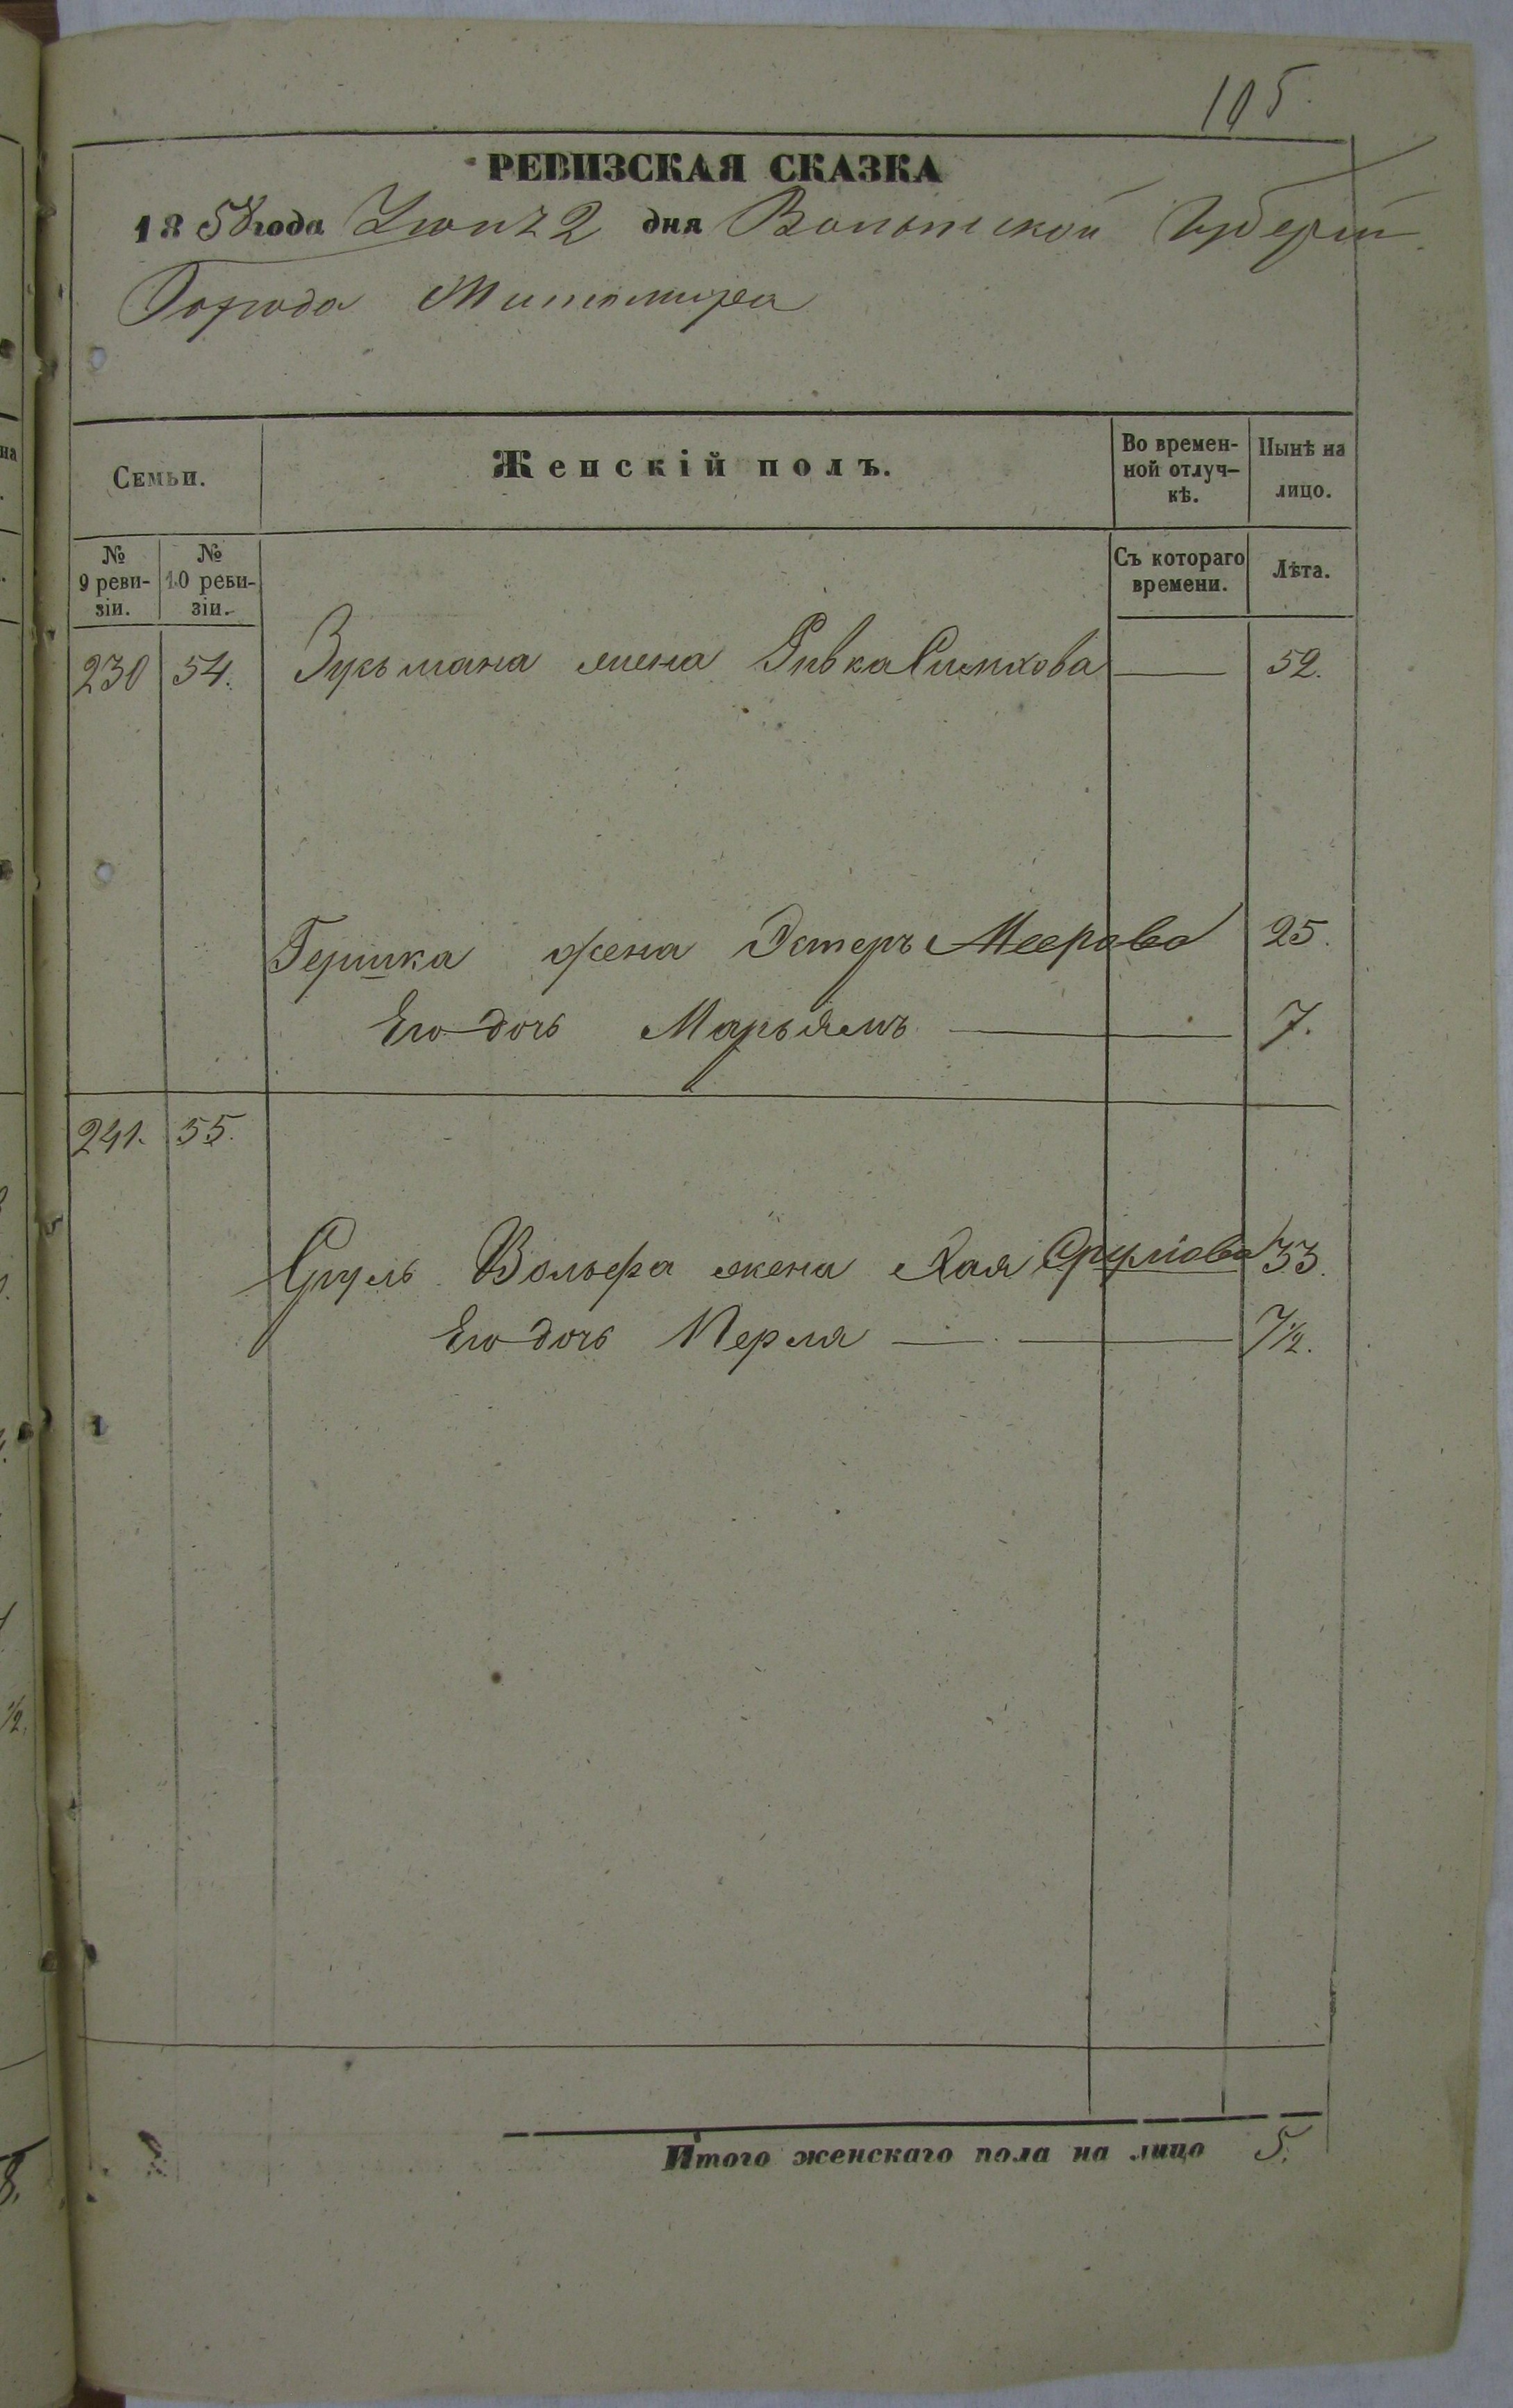 105.
РЕВИЗСКАЯ СКАЗКА
1858 года Июня 2 дня Волынской Губерніи
Города Житомира
Семьи.
Женскій полъ.
Во времен-
ной отлуч-
кѣ.
Нынѣ на
лицо.
№
9 реви-
зіи.
№
10 реви-
зіи.
Съ котораго
времени.
Лѣта.
230 54. Зусьмана жена Ривка Симхова — 52.
Гершка жена Эстеръ Меерова 25.
Его дочь Марьямъ — 7.
241. 55.
Сруль Вольфа жена Хая Срулiова 33.
Его дочь Перля — 7½.
Итого женскаго пола на лицо 5.